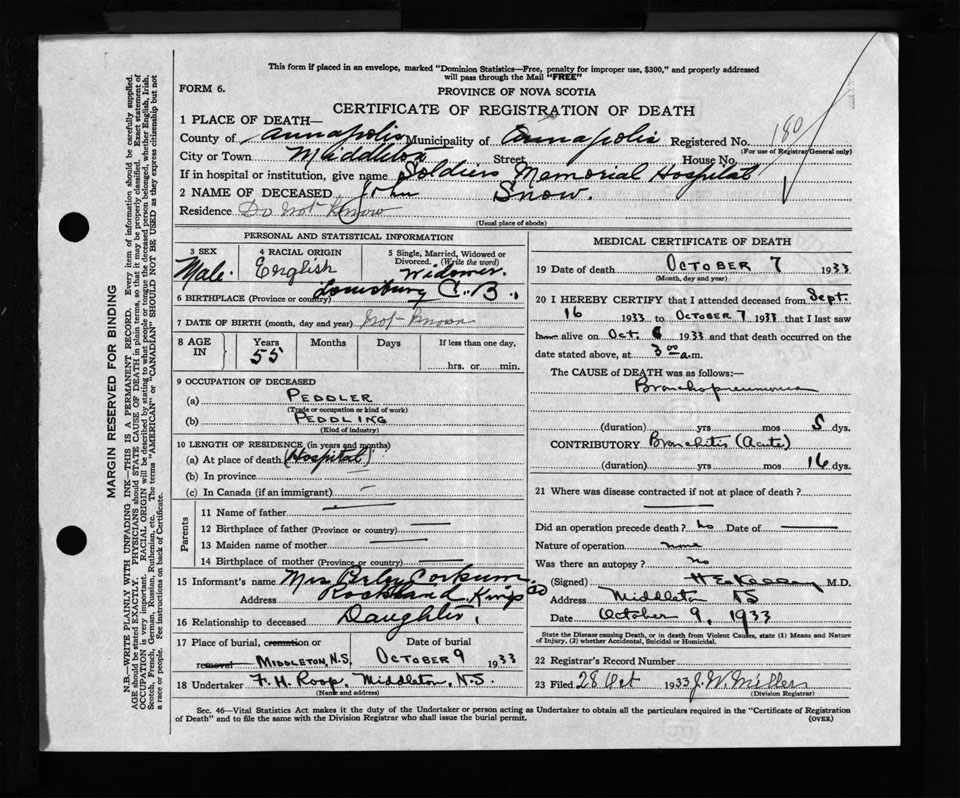 This form if placed in an envelope, marked "Dominion Statistics—Free, penalty for improper use, $300," and properly addressed
will pass through the Mail "FREE"
FORM 6.
PROVINCE OF NOVA SCOTIA
CERTIFICATE OF REGISTRATION OF DEATH
1 PLACE OF DEATH—
County of Annapolis Municipality of Annapolis Registered No. 180
(For use of Registrar General only)
City or Town Middleton Street House No.
If in hospital or institution, give name Soldiers Memorial Hospital
2 NAME OF DECEASED John Snow.
Residence Do Not Know
(Usual place of abode)
PERSONAL AND STATISTICAL INFORMATION
3 SEX
Male.
4 RACIAL ORIGIN
English
5 Single, Married, Widowed or
Divorced. (Write the word)
Widower.
6 BIRTHPLACE (Province or country) Louisburg C.B.,
7 DATE OF BIRTH (month, day and year) Not Known
8 AGE IN
Years Months Days If less than one day,
55
hrs. or min.
9 OCCUPATION OF DECEASED
(a) PEDDLER
(Trade or occupation or kind of work)
(b) PEDDLING
(Kind of industry)
10 LENGTH OF RESIDENCE (in years and months)
(a) At place of death (Hospital)
(b) In province
(c) In Canada (if an immigrant) —
Parents
11 Name of father —
12 Birthplace of father (Province or country) —
13 Maiden name of mother —
14 Birthplace of mother (Province or country) —
15 Informant's name Mrs Corkum
Address Rockland Kings Co
16 Relationship to deceased Daughter.
17 Place of burial, cremation or Date of burial
removal MIDDLETON, N.S. OCTOBER 9 1933
18 Undertaker F. H. Roop, Middleton, N.S.
(Name and address)
MEDICAL CERTIFICATE OF DEATH
19 Date of death OCTOBER 7 1933
(Month, day and year)
20 I HEREBY CERTIFY that I attended deceased from Sept.
16 1933 to OCTOBER 7 1933 that I last saw
h alive on Oct. 6 1933 and that death occurred on the
date stated above, at 3 00 a.m.
The CAUSE of DEATH was as follows:—
Bronchopneumonia
(duration) yrs mos 5 dys.
CONTRIBUTORY Bronchitis (Acute)
(duration) yrs mos 16 dys.
21 Where was disease contracted if not at place of death? —
Did an operation precede death? No Date of —
Nature of operation none
Was there an autopsy? no
(Signed) M.D.
Address Middleton NS
Date October 9, 1933
State the Disease causing Death, or in death from Violent Causes, state (1) Means and Nature
of Injury, (2) whether Accidental, Suicidal or Homicidal.
22 Registrar's Record Number
23 Filed 28 Oct 1933 J. W. Miller
(Division Registrar)
Sec. 46—Vital Statistics Act makes it the duty of the Undertaker or person acting as Undertaker to obtain all the particulars required in the "Certificate of Registration
of Death" and to file the same with the Division Registrar who shall issue the burial permit.
(OVER)
MARGIN RESERVED FOR BINDING
N.B.—WRITE PLAINLY WITH UNFADING INK—THIS IS A PERMANENT RECORD. Every item of information should be carefully supplied.
AGE should be stated EXACTLY. PHYSICIANS should STATE CAUSE OF DEATH in plain terms, so that it may be properly classified. Exact statement of
OCCUPATION is very important. RACIAL ORIGIN will be described by stating to what people or tongue the deceased person belonged, whether English, Irish,
Scotch, French, German, Russian, Ruthenian, etc. The terms "AMERICAN" or "CANADIAN" SHOULD NOT BE USED as they express citizenship but not
a race or people. See instructions on back of Certificate.